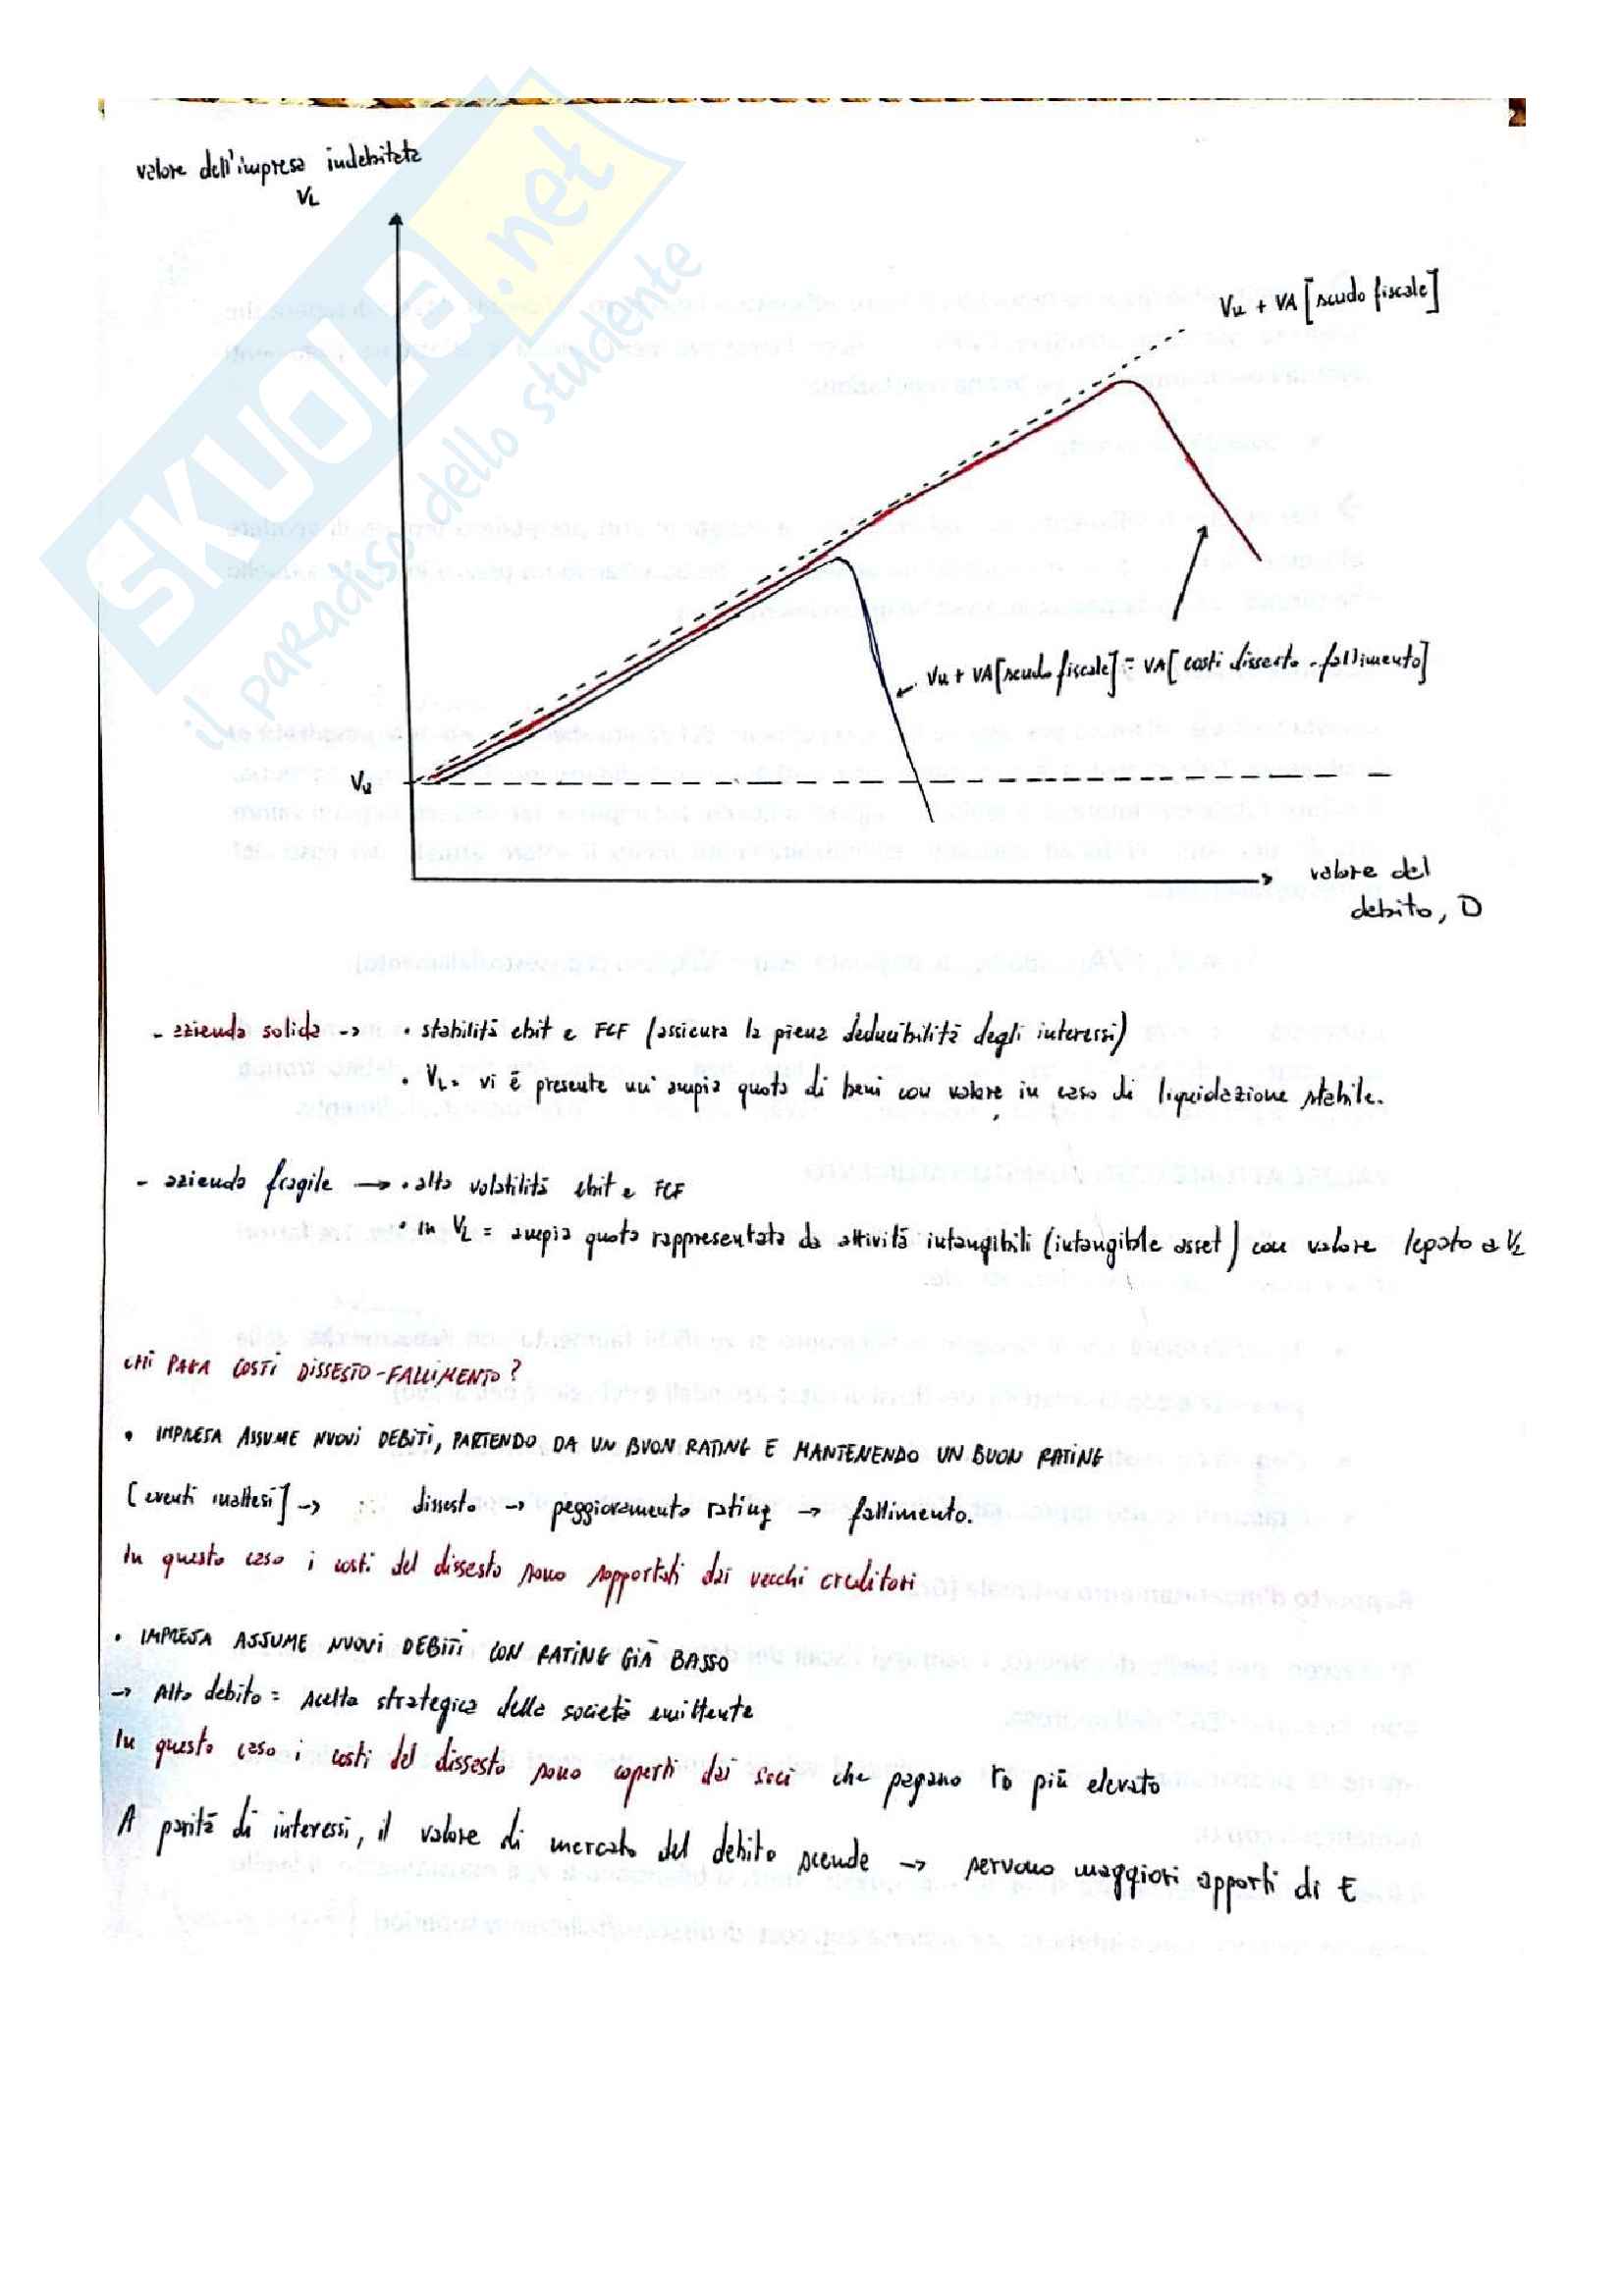 valore dell'impresa indebitata
VL
SKUOLA.net
il paradiso dello studente
Vu + VA [scudo fiscale]
Vu + VA [scudo fiscale] - VA [costi dissesto-fallimento]
Vu
valore del
debito, D
- azienda solida -> • stabilità ebit e FCF (assicura la piena deducibilità degli interessi)
• VL = vi è presente un'ampia quota di beni con valore in caso di liquidazione stabile.
- azienda fragile -> • alta volatilità ebit e FCF
• in VL = ampia quota rappresentata da attività intangibili (intangible asset) con valore legato a VL
CHI PAGA COSTI DISSESTO-FALLIMENTO?
• IMPRESA ASSUME NUOVI DEBITI, PARTENDO DA UN BUON RATING E MANTENENDO UN BUON RATING
[eventi inattesi] -> dissesto -> peggioramento rating -> fallimento.
In questo caso i costi del dissesto sono sopportati dai vecchi creditori
• IMPRESA ASSUME NUOVI DEBITI CON RATING GIÀ BASSO
-> Alto debito = scelta strategica della società emittente
In questo caso i costi del dissesto sono coperti dai soci che pagano rD più elevato
A parità di interessi, il valore di mercato del debito scende -> servono maggiori apporti di E